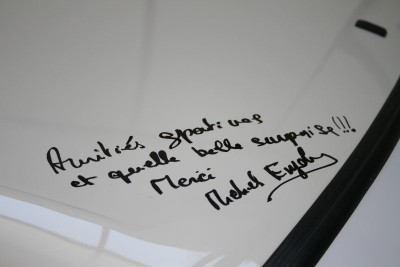 Amitiés sportives
et quelle belle surprise!!!
Merci
Michel